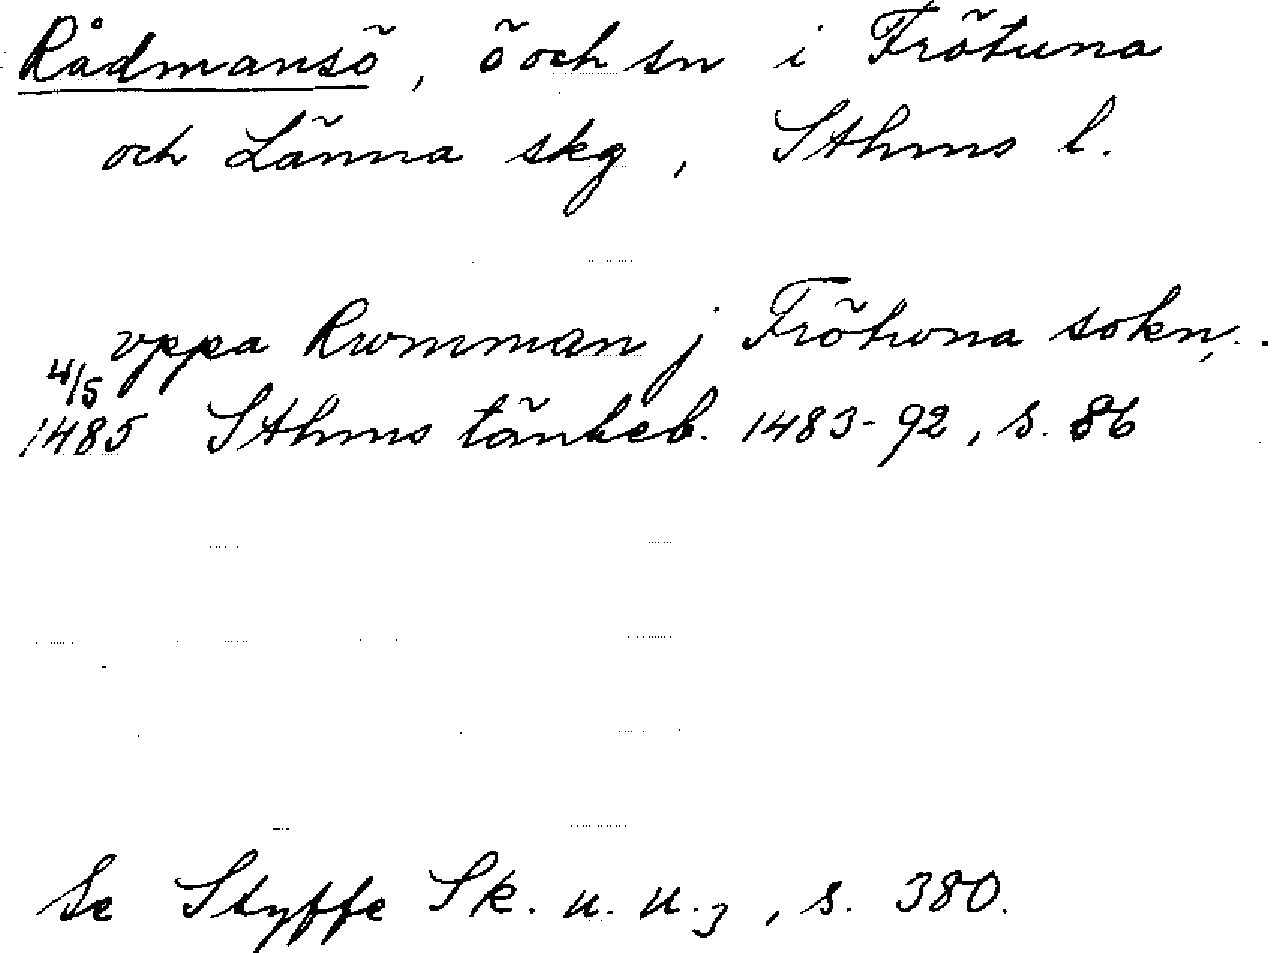 Rådmansö, ö och sn i Frötuna
och Länna skg, Sthms l.
vppa Rwmman j Frötwna sokn,.
4/5
1485 Sthms tänkeb. 1483-92, s. 86
Se Styffe Sk. u. u.3, s. 380.